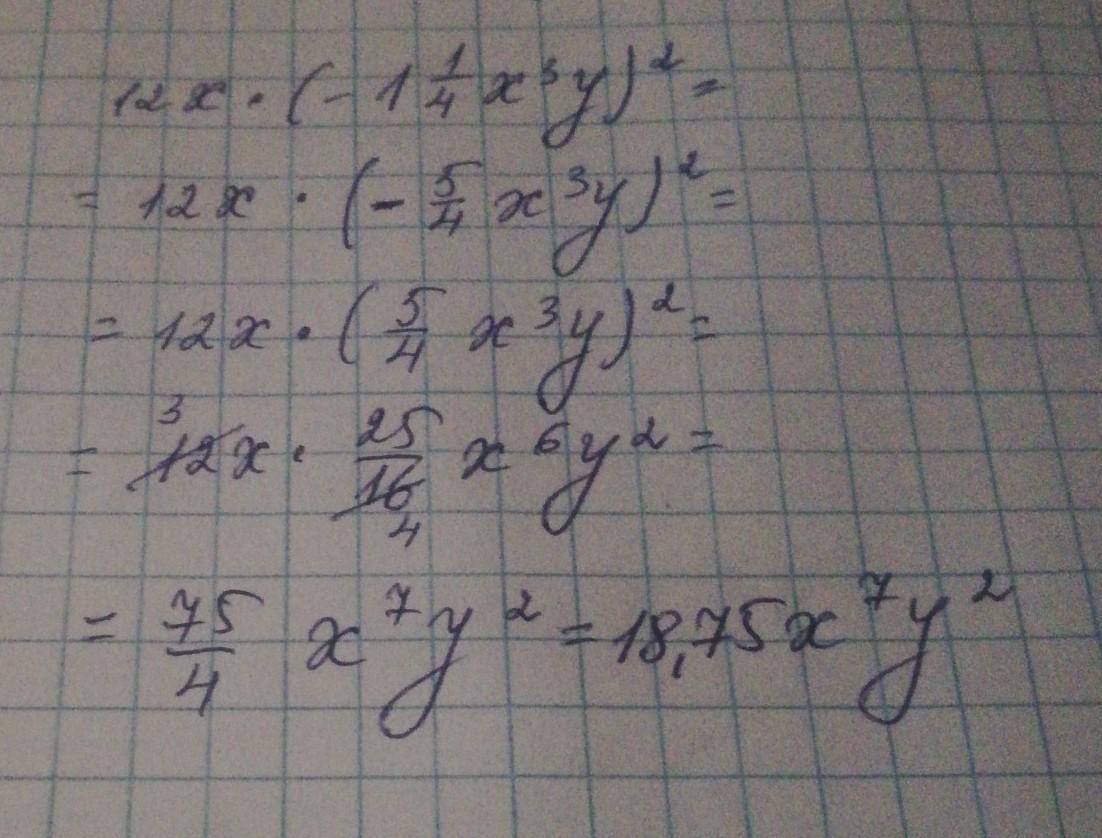 12x · (- 1 1/4 x³y)² =
= 12x · (- 5/4 x³y)² =
= 12x · (5/4 x³y)² =
3
= 12x · 25/16 x⁶y² =
4
= 75/4 x⁷y² = 18,75x⁷y²